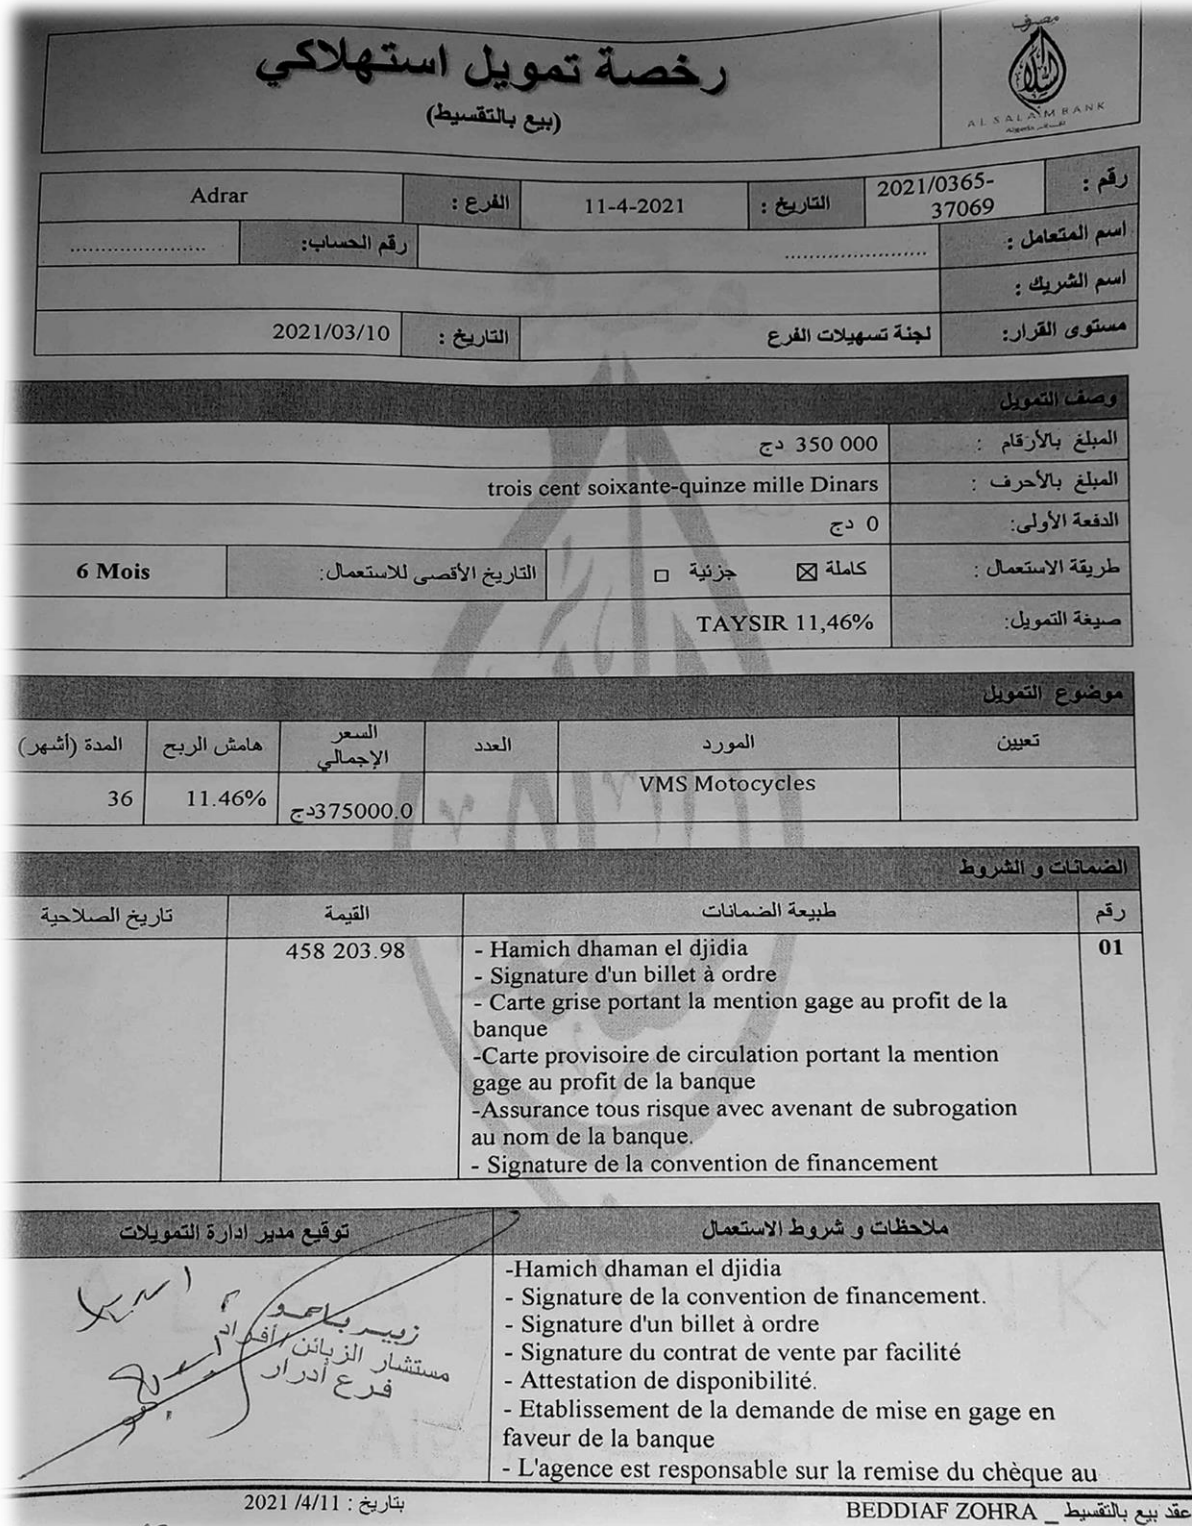 رخصة تمويل استهلاكي
(بيع بالتقسيط)
مصرف
السلام
AL SALAM BANK
Algeria
رقم : 2021/0365-37069 التاريخ : 11-4-2021 الفرع : Adrar
اسم المتعامل : ....................... رقم الحساب: ......................
اسم الشريك :
مستوى القرار: لجنة تسهيلات الفرع التاريخ : 2021/03/10
وصف التمويل
المبلغ بالأرقام : 350 000 دج
المبلغ بالأحرف : trois cent soixante-quinze mille Dinars
الدفعة الأولى: 0 دج
طريقة الاستعمال : كاملة ☒ جزئية □ التاريخ الأقصى للاستعمال: 6 Mois
صيغة التمويل: TAYSIR 11,46%
موضوع التمويل
تعيين المورد العدد السعر الإجمالي هامش الربح المدة (أشهر)
VMS Motocycles 375000.0دج 11.46% 36
الضمانات و الشروط
رقم طبيعة الضمانات القيمة تاريخ الصلاحية
01 - Hamich dhaman el djidia 458 203.98
- Signature d'un billet à ordre
- Carte grise portant la mention gage au profit de la
banque
-Carte provisoire de circulation portant la mention
gage au profit de la banque
-Assurance tous risque avec avenant de subrogation
au nom de la banque.
- Signature de la convention de financement
ملاحظات و شروط الاستعمال
-Hamich dhaman el djidia
- Signature de la convention de financement.
- Signature d'un billet à ordre
- Signature du contrat de vente par facilité
- Attestation de disponibilité.
- Etablissement de la demande de mise en gage en
faveur de la banque
- L'agence est responsable sur la remise du chèque au
توقيع مدير ادارة التمويلات
زبير باحمو
مستشار الزبائن /أفراد
فرع أدرار
عقد بيع بالتقسيط _ BEDDIAF ZOHRA بتاريخ : 2021 /4/11